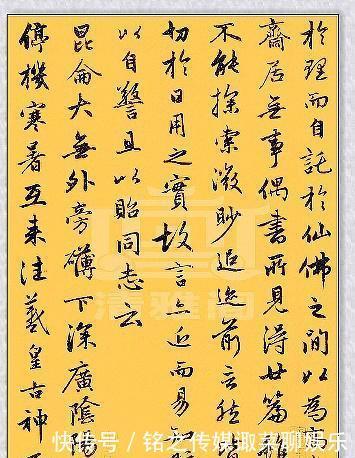 於理而自託於仙佛之间以為高
齋居無事偶書所見得廿篇
不能探索微眇追迹前言然皆
切於日用之實故言亦近而易知
以自警且以貽同志云
昆侖大無外旁礴下深廣陰陽
停機寒暑互來往羲皇古神
清雅阁
快传号/铭之传媒娱菜聊娱乐